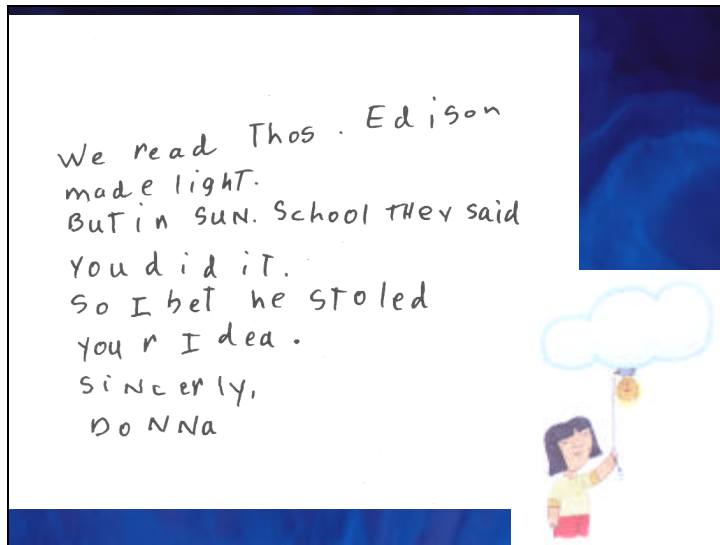 We read Thos. Edison
made light.
But in SUN. School THey said
You did it.
So I bet he stoled
your Idea.
SiNcerly,
DoNNa